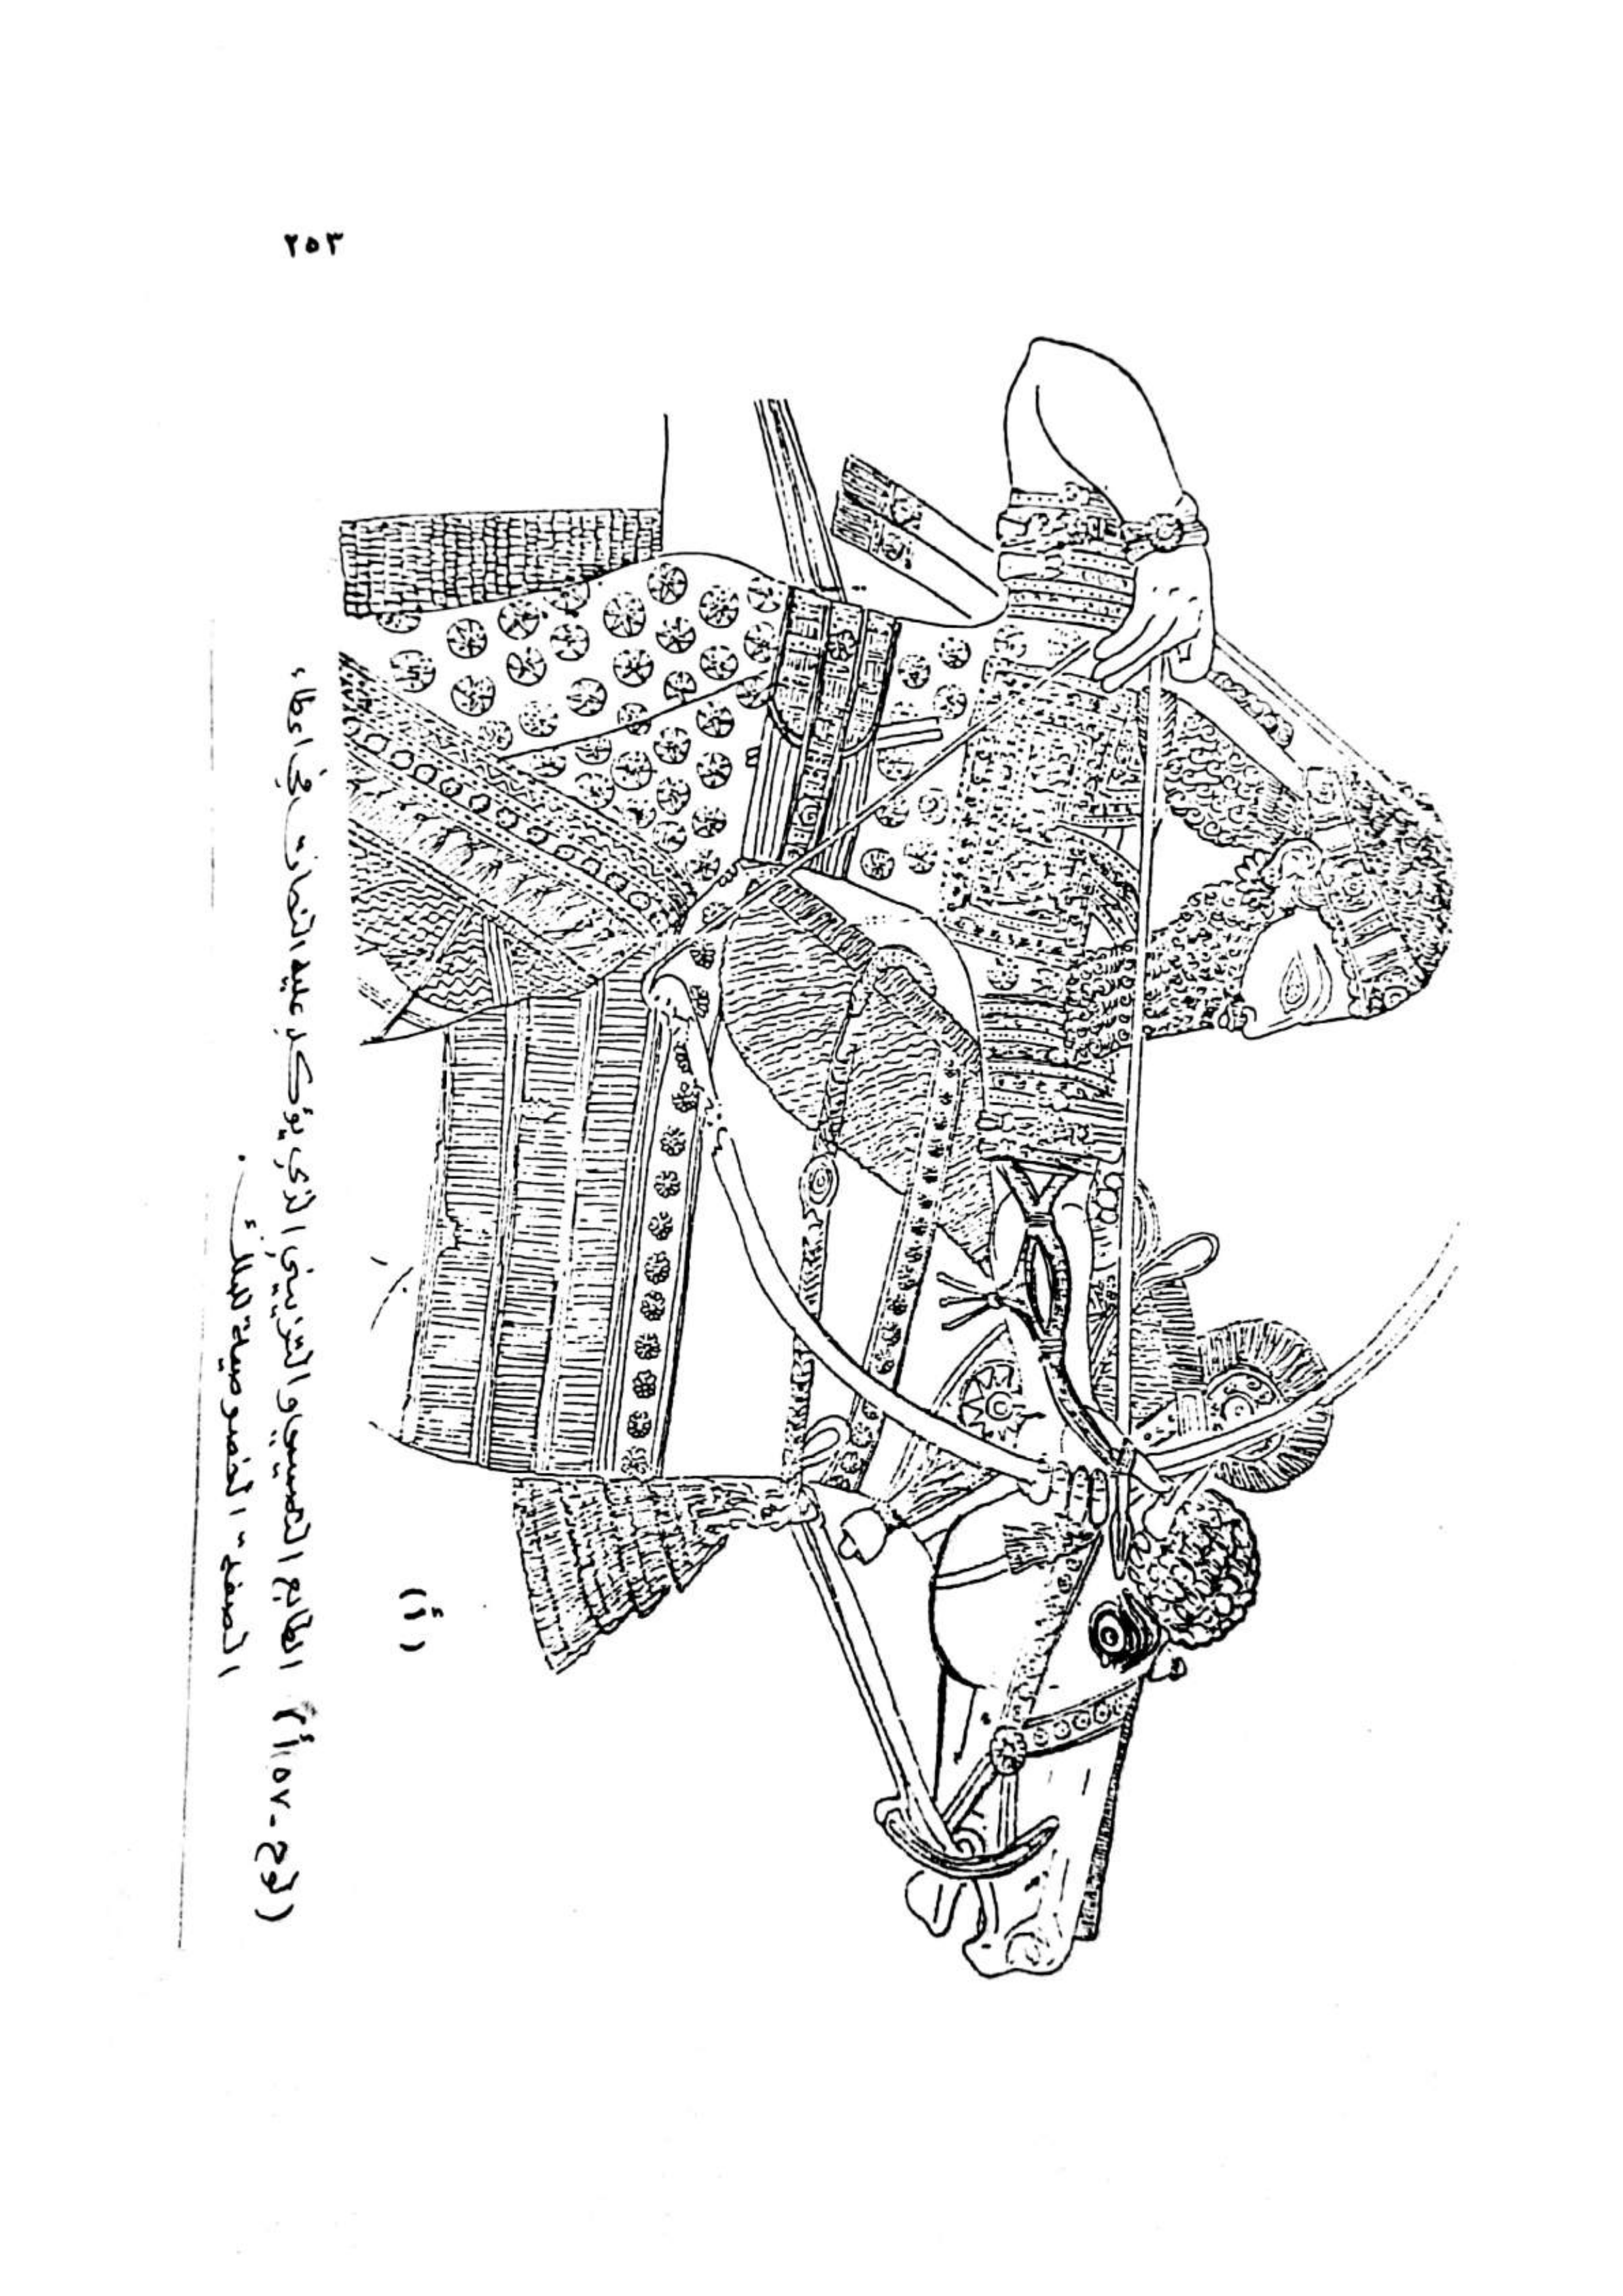 ٢٥٣
(أ)
(لوح-٥٧أ) الطابع القصصي والتزييني الذي يؤكد عليه النحات في اعطاء
الصفة الخصوصية للملك.